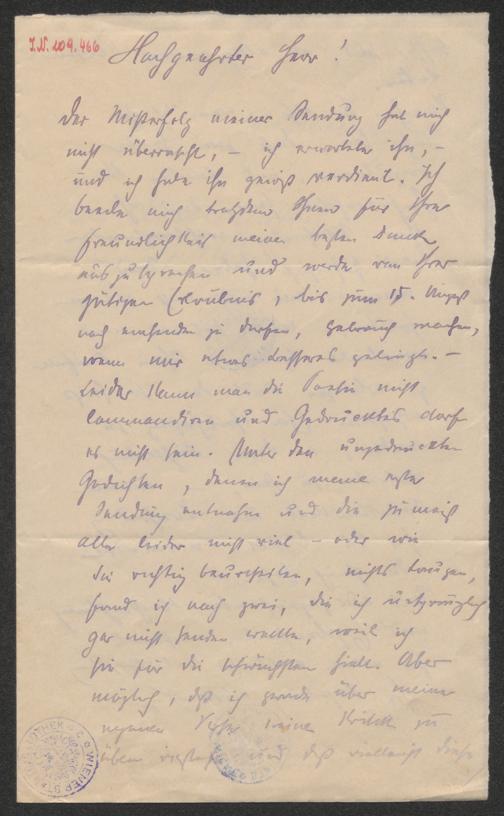 I.N. 109.466
Hochgeehrter Herr!
Der Mißerfolg meiner Sendung hat mich
nicht überrascht, – ich erwartete ihn, –
und ich habe ihn gewiß verdient. Ich
beeile mich trotzdem Ihnen für Ihre
Freundlichkeit meinen besten Dank
auszusprechen und werde von Ihrer
gütigen Erlaubnis, bis zum 15. August
noch einsenden zu dürfen, Gebrauch machen,
wenn mir etwas Besseres gelingt. –
Leider kann man die Poesie nicht
commandiren und Gedrucktes darf
es nicht sein. Unter den ungedruckten
Gedichten, denen ich meine erste
Sendung entnahm und die zumeist
alle leider nicht viel – oder wie
Sie richtig beurtheilen, nichts taugen,
fand ich noch zwei, die ich ursprünglich
gar nicht senden wollte, weil ich
sie für die schwächsten hielt. Aber
möglich, daß ich gerade über meine
eigenen Verse keine Kritik zu
üben und daß vielleicht diese